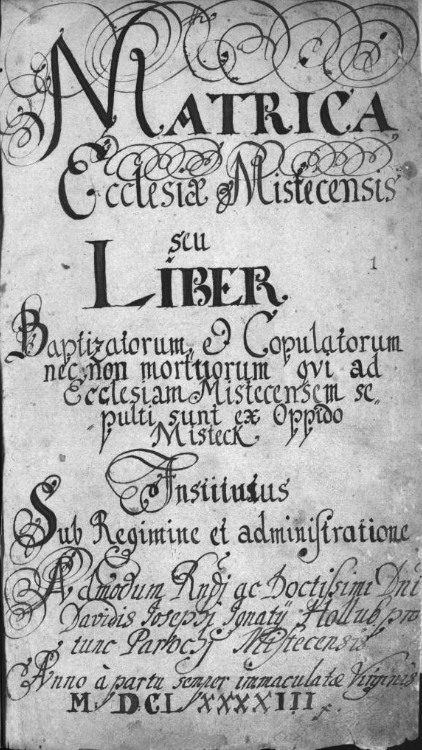 MATRICA
Ecclesiæ Mistecensis
seu
LIBER
1
Baptizatorum, et Copulatorum
nec non mortuorum qvi ad
Ecclesiam Mistecensem se„
pulti sunt ex Oppido
Misteck
Institutus
Sub Regimine et administratione
Admodum Rndj ac Doctissimi Dni
Davidis Josephi Ignatij Hollub, pro
tunc Parochj Mistecensis
Anno à partu semper immaculatæ Virginis
MDCLXXXXIII